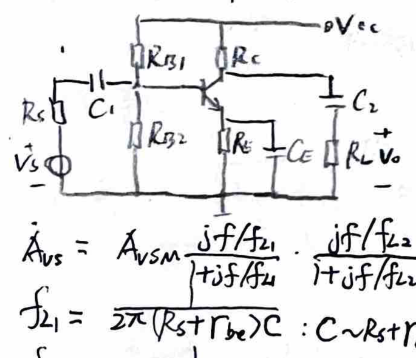 Vcc
RB1
Rc
Rs
C1
C2
RB2
RE
CE
RL
+
Vo
−
+
Vs
−
ȦVS = ȦVSM (jf/fL1)/(1+jf/fL1) · (jf/fL2)/(1+jf/fL2)
fL1 = 1/(2π(Rs+rbe)C) : C~Rs+r